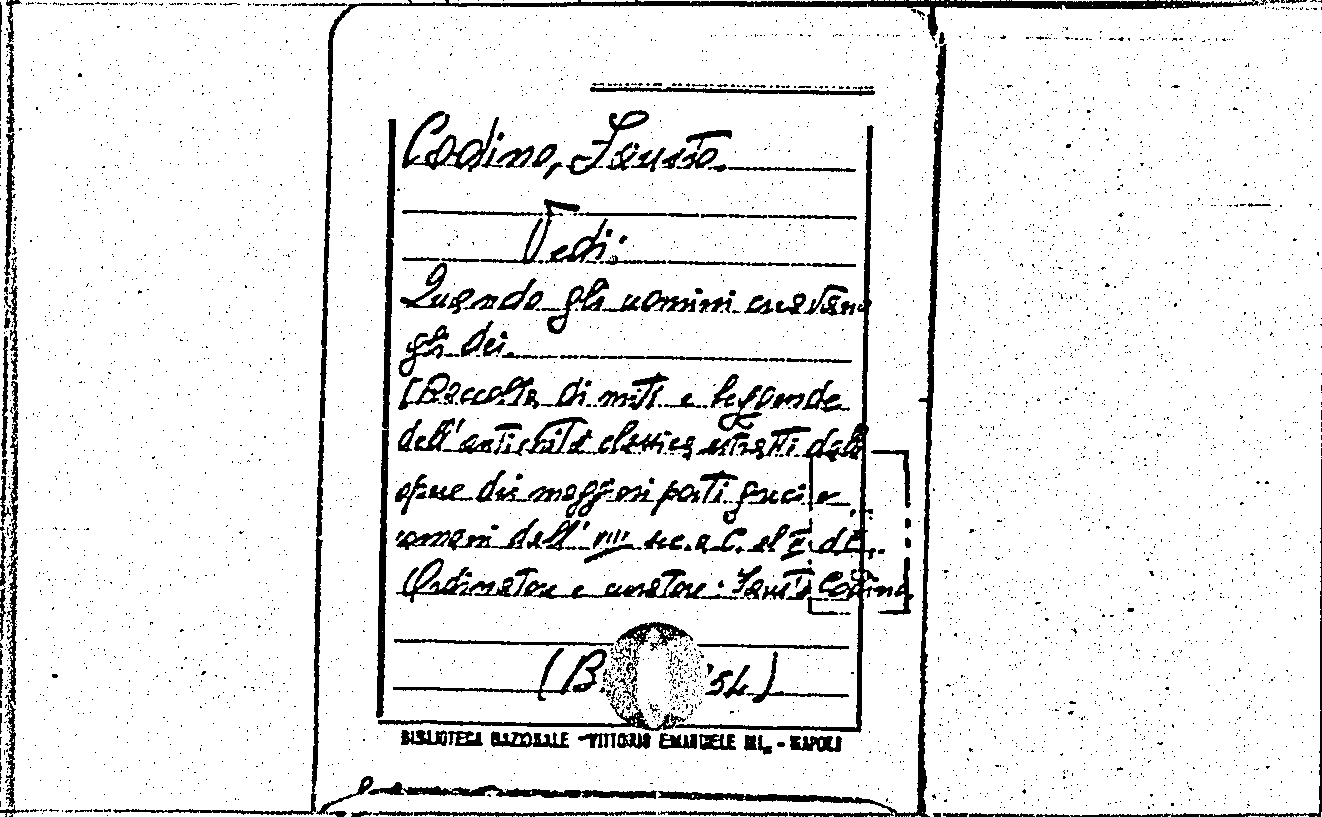 Codino, Fausto.
Vedi:
Quando gli uomini creavano
gli dei.
[Raccolta di miti e leggende
dell'antichità classica, estratti dalle
opere dei maggiori poeti greci e
romani dell'VIII sec. a. C. al
Ordinatore e curatore: Fausto Codino
(B. 54)
BIBLIOTECA NAZIONALE "VITTORIO EMANUELE III" - NAPOLI